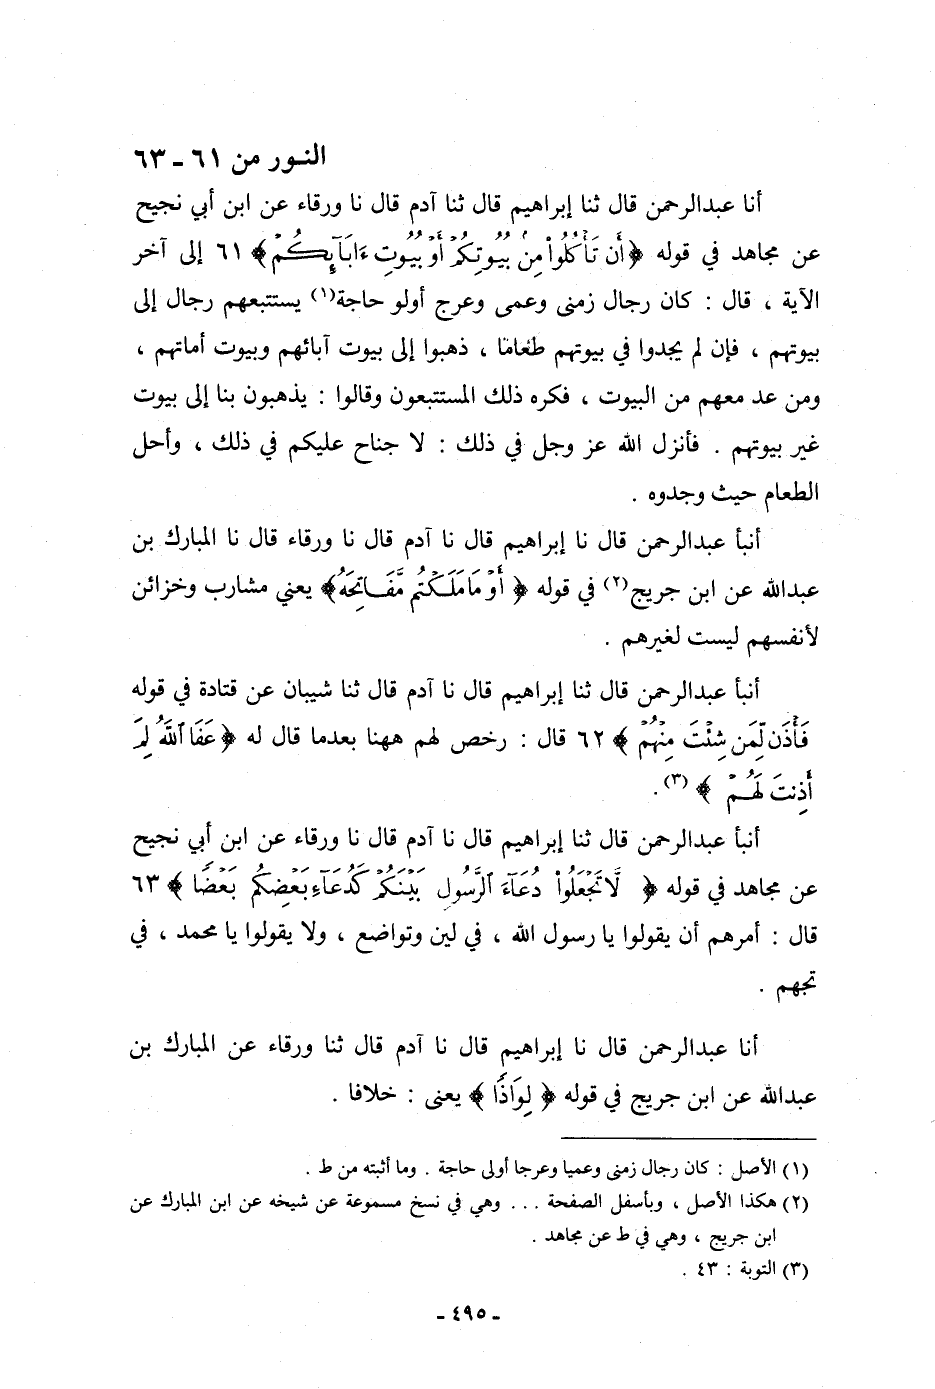 النـور من ٦١ ـ ٦٣
أنا عبدالرحمن قال ثنا إبراهيم قال ثنا آدم قال نا ورقاء عن ابن أبي نجيح
عن مجاهد في قوله ﴿أَن تَأْكُلُوا۟ مِنۢ بُيُوتِكُمْ أَوْ بُيُوتِ ءَابَآئِكُمْ﴾ ٦١ إلى آخر
الآية ، قال : كان رجال زمنى وعمى وعرج أولو حاجة(١) يستتبعهم رجال إلى
بيوتهم ، فإن لم يجدوا في بيوتهم طعاما ، ذهبوا إلى بيوت آبائهم وبيوت أماتهم ،
ومن عد معهم من البيوت ، فكره ذلك المستتبعون وقالوا : يذهبون بنا إلى بيوت
غير بيوتهم . فأنزل الله عز وجل في ذلك : لا جناح عليكم في ذلك ، وأحل
الطعام حيث وجدوه .
أنبأ عبدالرحمن قال نا إبراهيم قال نا آدم قال نا ورقاء قال نا المبارك بن
عبدالله عن ابن جريج(٢) في قوله ﴿ أَوْ مَا مَلَكْتُم مَّفَاتِحَهُ﴾ يعني مشارب وخزائن
لأنفسهم ليست لغيرهم .
أنبأ عبدالرحمن قال ثنا إبراهيم قال نا آدم قال ثنا شيبان عن قتادة في قوله
فَأْذَن لِّمَن شِئْتَ مِنْهُمْ ﴾ ٦٢ قال : رخص لهم ههنا بعدما قال له ﴿ عَفَا ٱللَّهُ لِمَ
أَذِنتَ لَهُمْ ﴾ (٣).
أنبأ عبدالرحمن قال ثنا إبراهيم قال نا آدم قال نا ورقاء عن ابن أبي نجيح
عن مجاهد في قوله ﴿ لَّا تَجْعَلُوا۟ دُعَآءَ ٱلرَّسُولِ بَيْنَكُمْ كَدُعَآءِ بَعْضِكُم بَعْضًا ﴾ ٦٣
قال : أمرهم أن يقولوا يا رسول الله ، في لين وتواضع ، ولا يقولوا يا محمد ، في
تجهم .
أنا عبدالرحمن قال نا إبراهيم قال نا آدم قال ثنا ورقاء عن المبارك بن
عبدالله عن ابن جريج في قوله ﴿ لِوَاذًا ﴾ يعنى : خلافا .
(١) الأصل : كان رجال زمنى وعميا وعرجا أولى حاجة . وما أثبته من ط .
(٢) هكذا الأصل ، وبأسفل الصفحة ... وهي في نسخ مسموعة عن شيخه عن ابن المبارك عن
ابن جريج ، وهي في ط عن مجاهد .
(٣) التوبة : ٤٣ .
ـ ٤٩٥ ـ